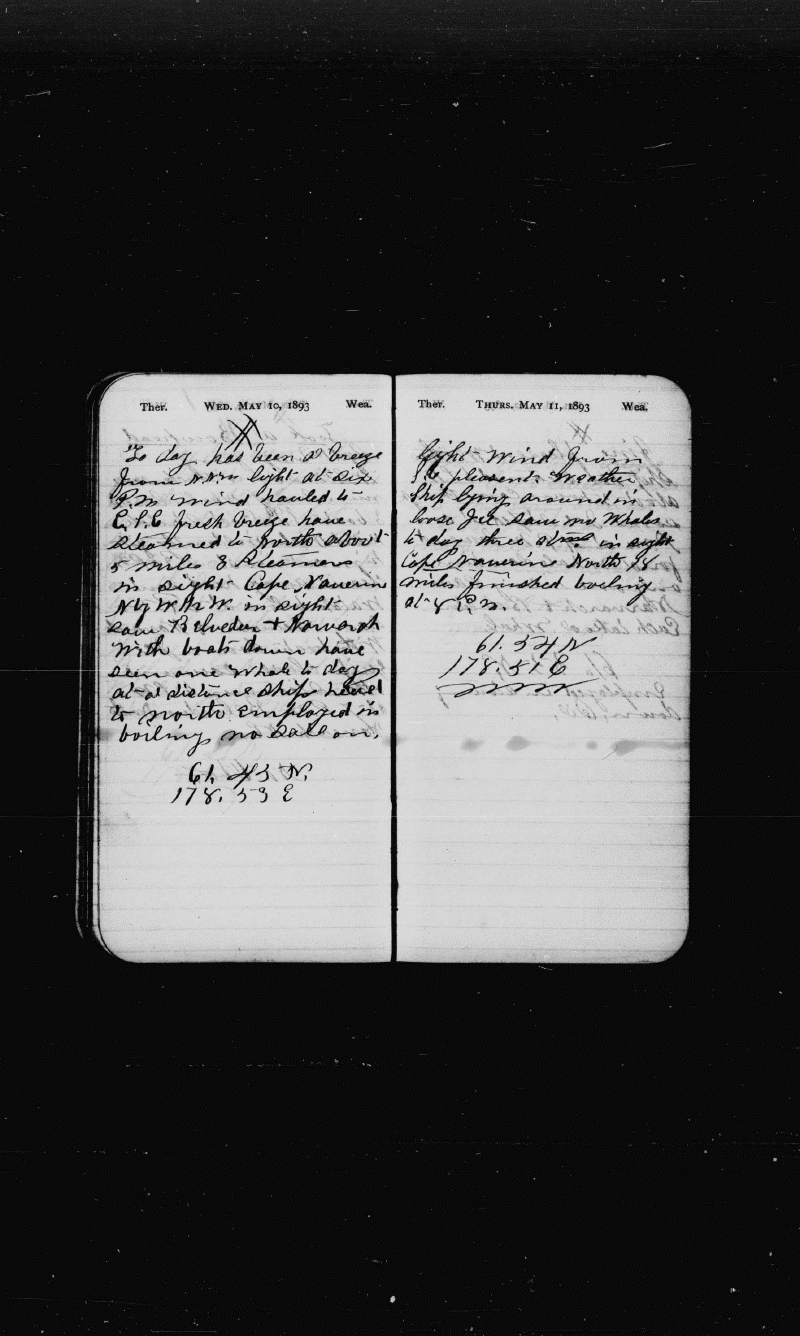 Ther. WED. MAY 10, 1893 Wea.
To day has been a breeze
from N.N.W. light at six
P.M. Wind hauled to
E.S.E fresh breeze have
steamed to North about
5 miles 8 Steamers
in sight Cape Naverin
N by W in sight
saw Belveder + Narwarh
With boats down have
seen one Whale to day
at a distance Ship head
to north Employed in
boiling no sale on.
61. 43 N.
178. 53 E
Ther. THURS. MAY 11, 1893 Wea.
Light Wind from
S.E pleasent Weather
Ship lying around in
loose Ice saw no Whales
to day three in sight
Cape Naverin North 18
miles finished boiling
at 8 P.M.
61. 54 N
178. 51 E